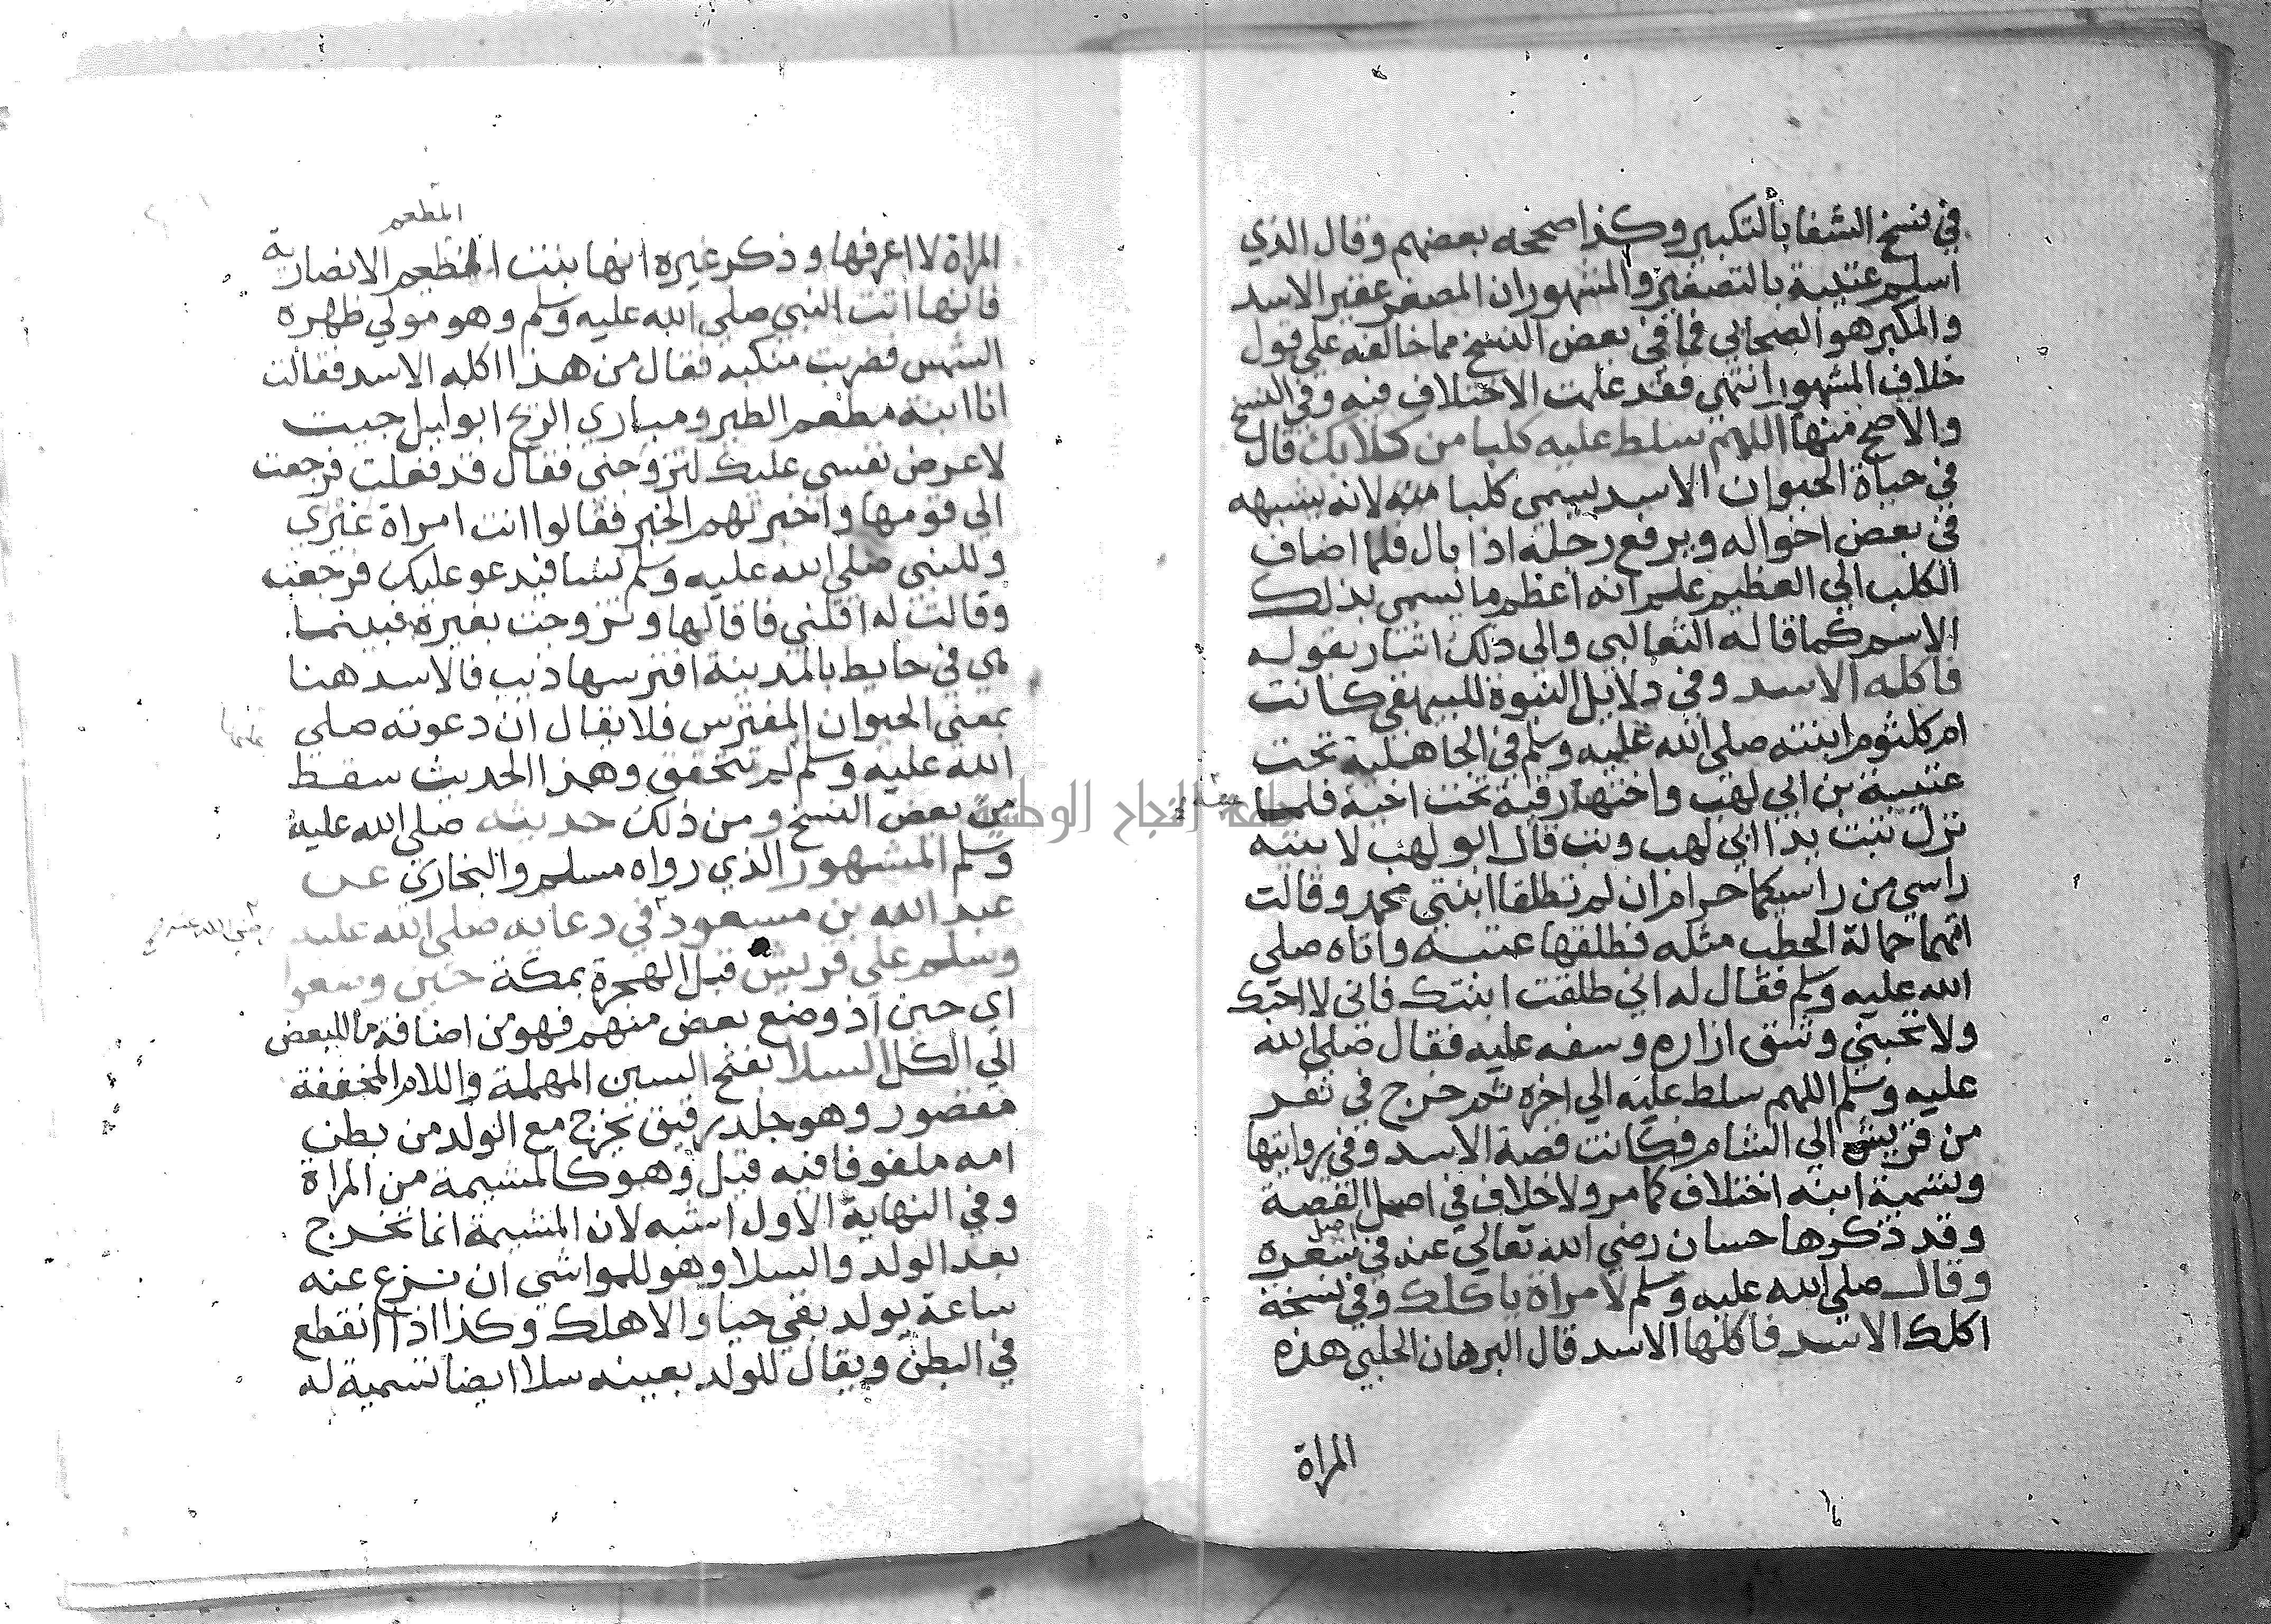 في نسخ الشفا بالتكبير وكذا صححه بعضهم وقال الذي
اسلم عتيبة بالتصغير والمشهور ان المصغر عقير الاسد
والمكبر هو الصحابي فما في بعض النسخ مما خالفه علي قول
خلاف المشهور انتهي فقد علمت الاختلاف فيه وفي النسخ
والاصح منها اللهم سلط عليه كلبا من كلابك قال
في حياة الحيوان الاسد يسمى كلبا منه لانه يشبهه
في بعض احواله ويرفع رجله اذا بال فلما اضاف
الكلب الي العظيم علم انه اعظم ما يسمى بذلك
الاسم كما قاله الثعالبى والى ذلك اشار بقوله
فاكله الاسد وفي دلايل النبوة للبيهقي كانت
ام كلثوم ابنته صلى الله عليه وسلم في الجاهلية تحت
عتيبة بن ابي لهب واختها رقية تحت اخيه فلما
نزل تبت يدا ابي لهب وتب قال ابو لهب لابنيه
راسي من راسيكما حرام ان لم تطلقا ابنتي محمد وقالت
امهما حمالة الحطب مثله فطلقها عتيبة واتاه صلى
الله عليه وسلم فقال له اني طلقت ابنتك فاني لا احبك
ولا تحبني وشق ازاره وسفه عليه فقال صلى الله
عليه وسلم اللهم سلط عليه الي اخره ثم خرج في نفر
من قريش الى الشام فكانت قصة الاسد وفي روايتها
وتسمية ابنه اختلاف كما مر ولا خلاف في اصل القصة
وقد ذكرها حسان رضي الله تعالى عنه في شعره
وقال صلى الله عليه وسلم لامراة ياكلك وفي نسخة
اكلك الاسد فاكلها الاسد قال البرهان الحلبي هذه
المراة
المطعم
المراة لا اعرفها وذكر غيره انها بنت المطعم الانصارية
فانها اتت النبي صلى الله عليه وسلم وهو مولي ظهره
الشمس فضربت منكبه فقال من هذا اكله الاسد فقالت
انا ابنة مطعم الطير ومباري الريح ابو ليل جيت
لاعرض نفسى عليك لتزوجني فقال قد فعلت فرجعت
الي قومها واخبرتهم الخبر فقالوا انت امراة غيري
وللنبي صلى الله عليه وسلم نسا فيدعو عليك فرجعت
وقالت له اقلني فاقالها وتزوجت بغيره فبينما
هي في حايط بالمدينة افترسها ذيب فالاسد هنا
بمعني الحيوان المفترس فلا يقال ان دعوته صلى
الله عليه وسلم لم تتحقق وهذا الحديث سقط
من بعض النسخ ومن ذلك حديثه صلى الله عليه
جامعة النجاح الوطنية
وسلم المشهور الذي رواه مسلم والبخاري عن
عبد الله بن مسعود في دعايه صلى الله عليه
رضي الله عنه
وسلم علي قريش قبل الهجرة بمكة حين وضعوا
اي حين اذ وضع بعض منهم فهو من اضافة ما للبعض
الي الكل السلا بفتح السين المهملة واللام المخففة
مقصور وهو جلد رقيق يخرج مع الولد من بطن
امه ملفوفا فيه قيل وهو كالمشيمة من المراة
وفي النهاية الاول اشبه لان المشيمة انما تخرج
بعد الولد والسلا وهو للمواشى ان نزع عنه
ساعة يولد بقي حيا والا هلك وكذا اذا انقطع
في البطن ويقال للولد بعينه سلا ايضا تسمية له